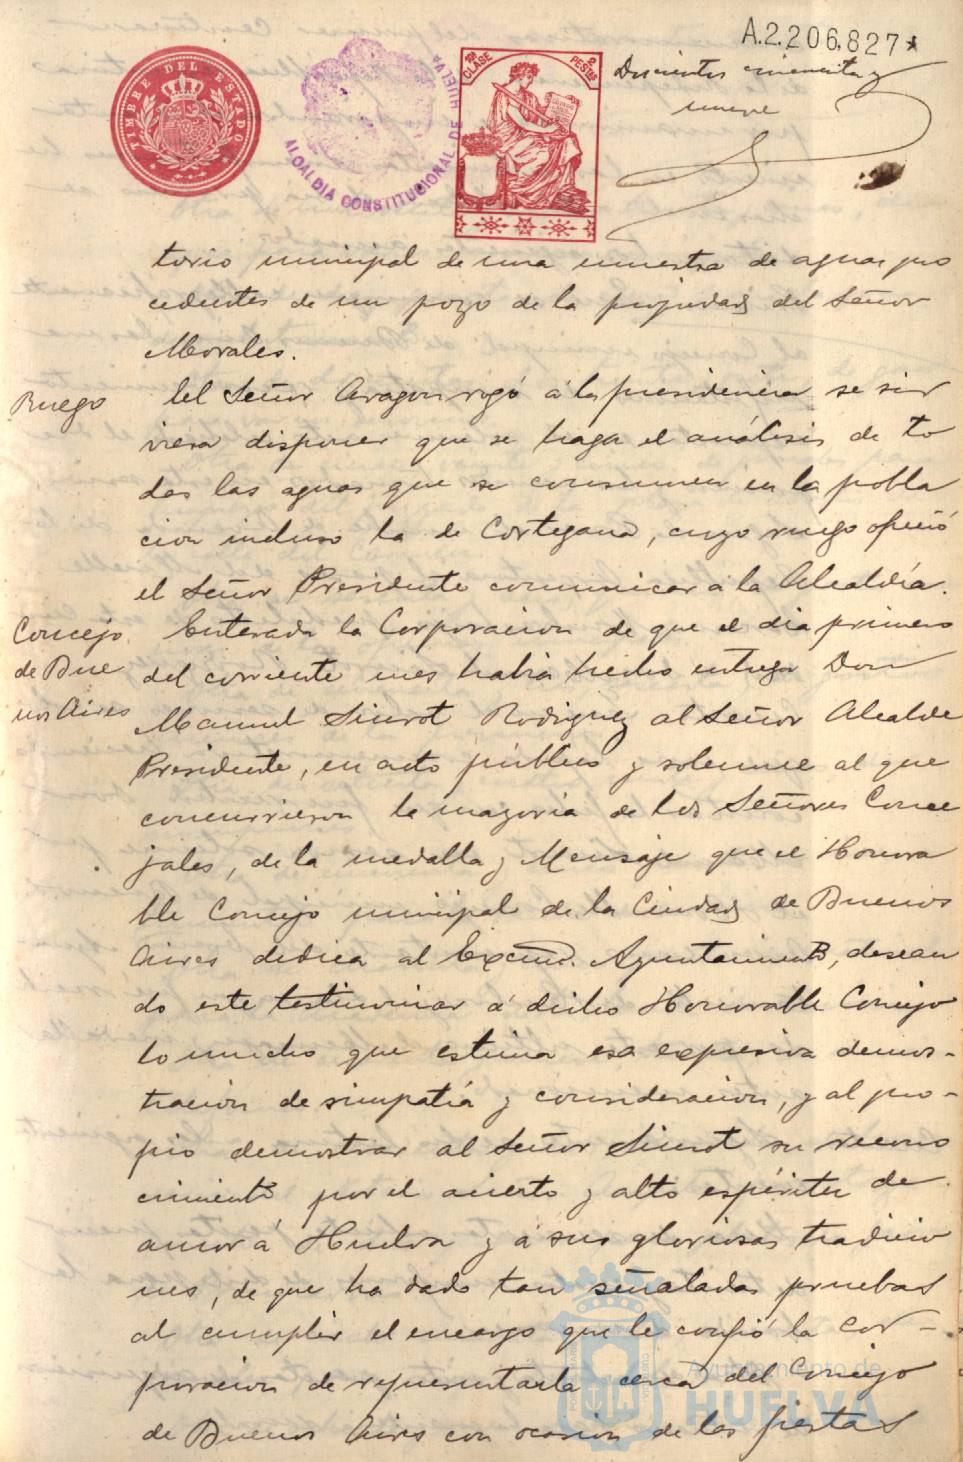 A.2.206.827*
TIMBRE DEL ESTADO
ALCALDIA CONSTITUCIONAL DE HUELVA
10ª CLASE
2 PESETAS
Doscientos cincuenta y
nueve
torio municipal de una muestra de aguas pro
cedentes de un pozo de la propiedad del Señor
Morales.
Ruego
El Señor Aragon rogó á la presidencia se sir
viera disponer que se haga el análisis de to
das las aguas que se consumen en la pobla
cion incluso la de Cortegana, cuyo ruego ofreció
el Señor Presidente comunicar a la Alcaldía.
Concejo
de Bue
nos Aires
Enterada la Corporacion de que el dia primero
del corriente mes habia hecho entrega Don
Manuel Siurot Rodriguez al Señor Alcalde
Presidente, en acto público y solemne al que
concurrieron la mayoria de los Señores Conce
jales, de la medalla y Mensaje que el Honora
ble Concejo municipal de la Ciudad de Buenos
Aires dedica al Excmo. Ayuntamiento, desean
do este testimoniar á dicho Honorable Concejo
lo mucho que estima esa expresiva demos-
tracion de simpatía y consideracion, y al pro-
pio demostrar al Señor Siurot su recono
cimiento por el acierto y alto espíritu de
amor á Huelva y á sus gloriosas tradicio
nes, de que ha dado tan señaladas pruebas
al cumplir el encargo que le confió la Cor-
poracion de representarla cerca del Concejo
de Buenos Aires con ocasion de las fiestas
Ayuntamiento de
HUELVA